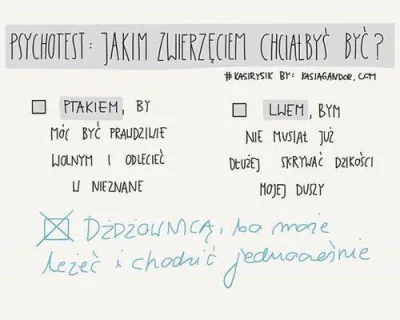 PSYCHOTEST: JAKIM ZWIERZĘCIEM CHCIAŁBYŚ BYĆ?
#KASIRYSIK BY: KASIAGANDOR.COM
PTAKIEM, BY
MÓC BYĆ PRAWDZIWIE
WOLNYM I ODLECIEĆ
W NIEZNANE
LWEM, BYM
NIE MUSIAŁ JUŻ
DŁUŻEJ SKRYWAĆ DZIKOŚCI
MOJEJ DUSZY
DŻDŻOWNICĄ, bo może
leżeć i chodzić jednocześnie